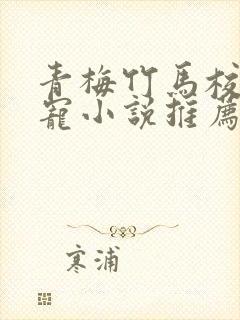 青梅竹馬校
寵小說推薦
寒浦